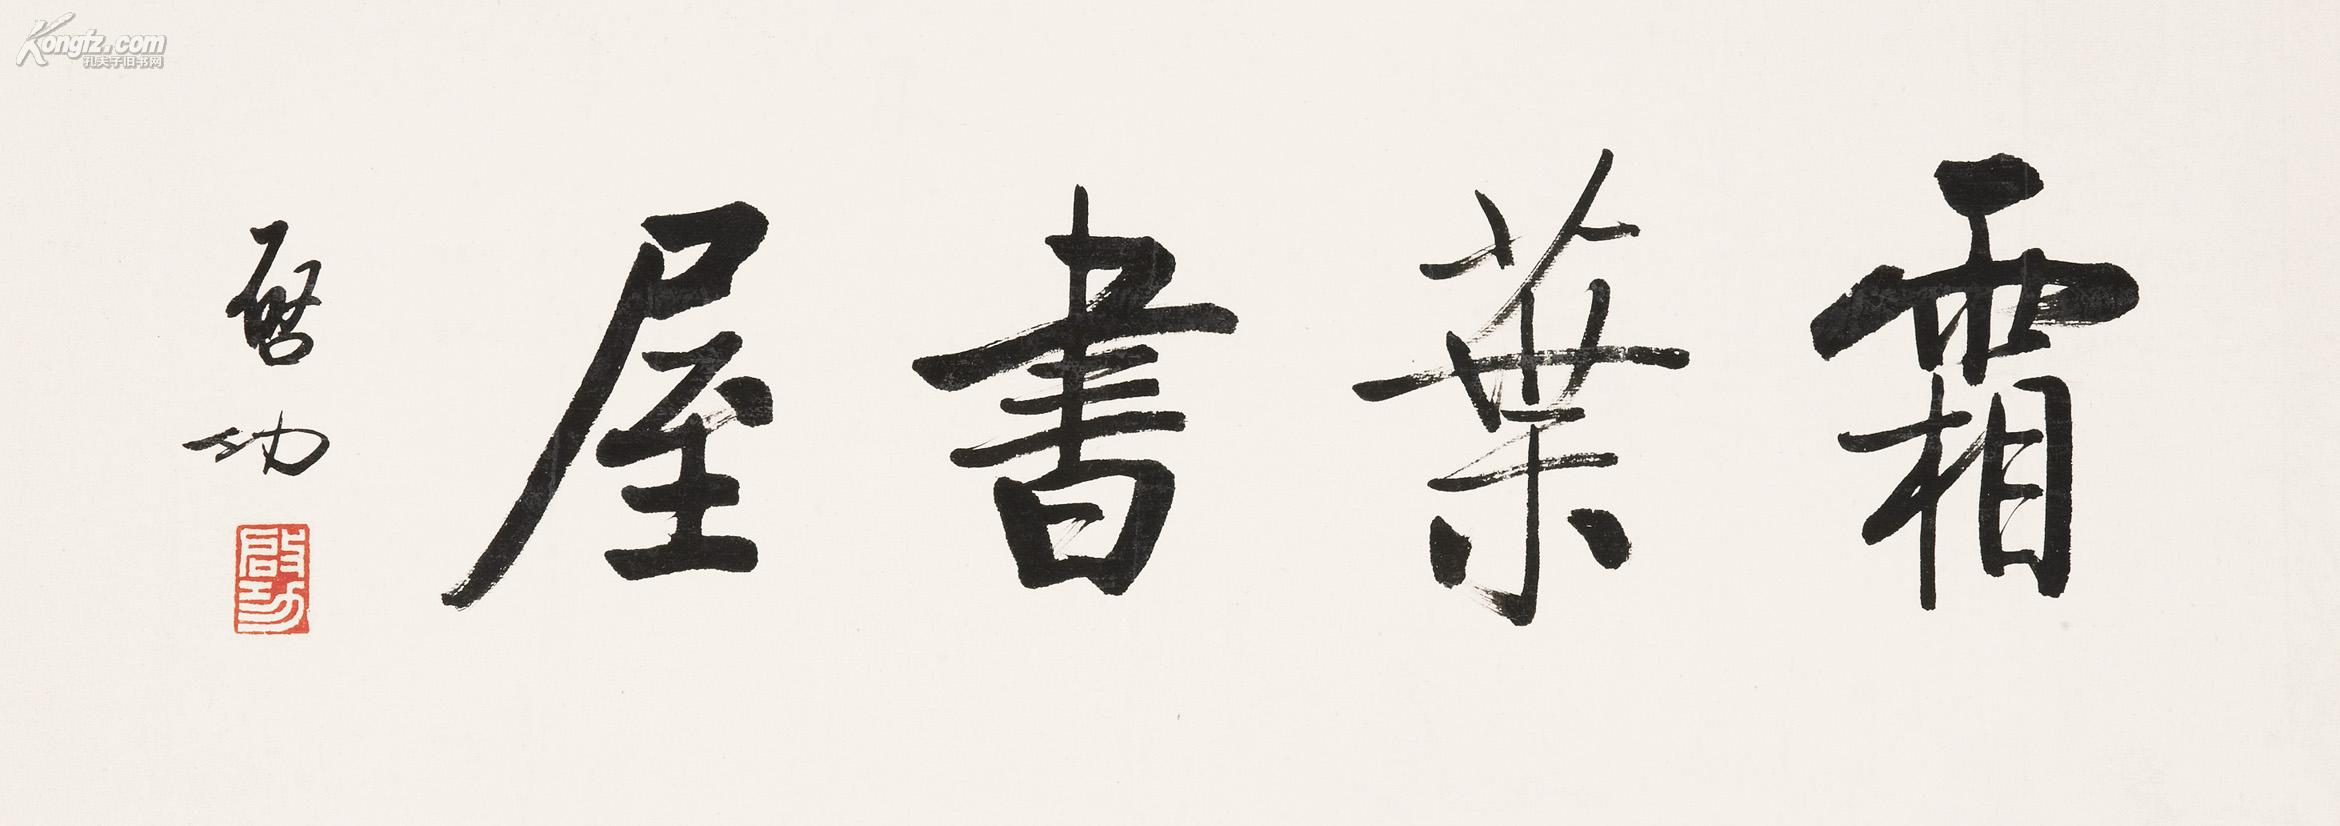 霜葉書屋
啓功
啟功
Kongfz.com
孔夫子旧书网